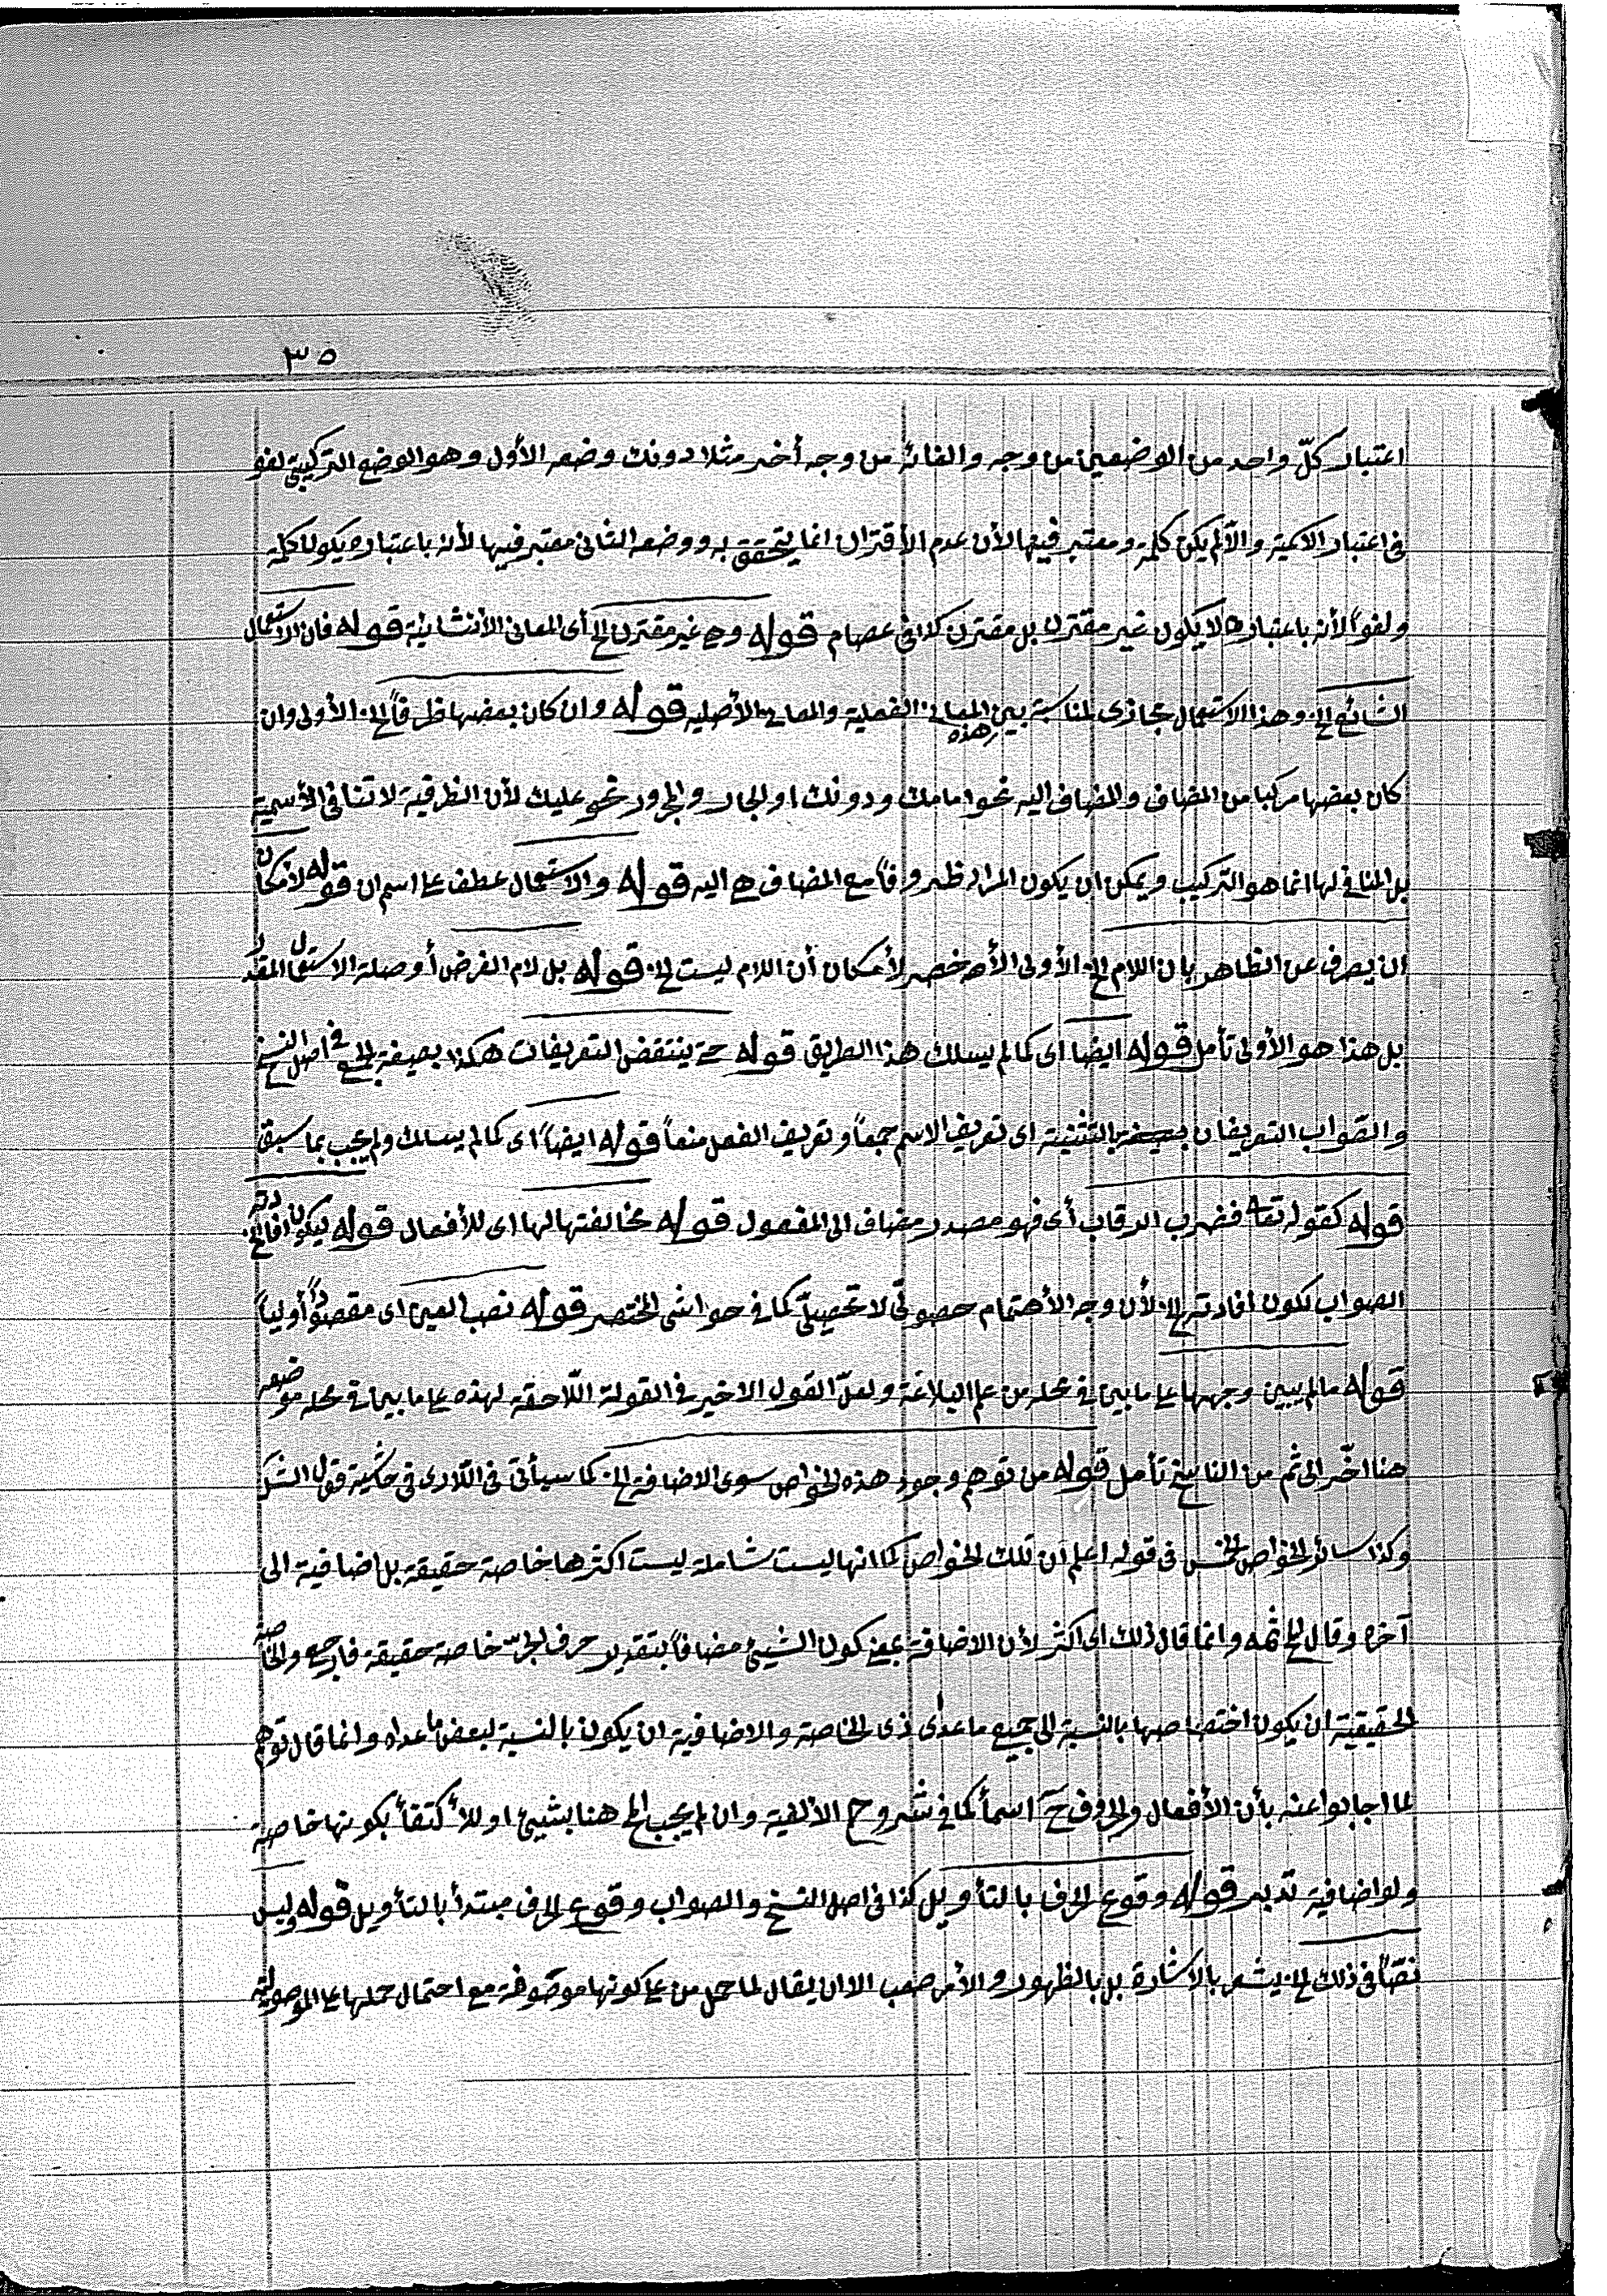 ٣٥
اعتبار كلّ واحد من الوضعين من وجه والغائه من وجه أخر مثلا دونك وضعه الأول وهو الوضع التركيبيّ لغو
فى اعتبار الاسمية والّا لم يكن كلمة ومعتبر فيها لأن عدم الأقتران انما يتحقق به ووضعه الثانى معتبر فيها لأنه باعتباره يكون كلمة
ولغواً لأنه باعتباره لا يكون غير مقترن بل مقترن كذا فى عصام قوله وهى غير مقترن الخ أى المعانى الأنشائية قوله فان الاستعمال
الشائع الخ وهذا الاستعمال مجازى لمناسبة بين هذه المعانى الفعلية والمعانى الأصليه قوله وان كان بعضها ظرفاً الخ الأولى وان
كان بعضها مركبا من المضاف والمضاف اليه نحو امامك ودونك او الجار والمجرور نحو عليك لأن الظرفية لا تنافى الأسمية
بل المنافى لها انما هو التركيب ويمكن ان يكون المراد ظروفاً مع المضاف هى اليه قوله والاستعمال عطف على اسم ان قوله لأمكان
ان يصرف عن الظاهر بان اللام الخ الأولى الأخصر لأمكان أن اللام ليست الخ قوله بل لام الغرض أو صلة الاستعمال المقدر
بل هذا هو الأولى تأمل قوله ايضا اى كما لم يسلك هذا الطريق قوله حتى ينتقض التعريفات هكذا بصيغة الجمع فى اصل النسخ
والصّواب التعريفان بصيغة التثنية اى تعريف الاسم جمعاً وتعريف الفعل منعاً قوله ايضاً اى كما لم يسلك ولم يجب بما سبق
قوله كقوله تعا فضرب الرقاب أى فهو مصدر مضاف الى المفعول قوله مخالفتها لها اى للأفعال قوله ليكون افادته الخ
الصواب لكون افادته الخ لأن وجه الأهتمام حصولىّ لا تحصيلىّ كما فى حواشى المختصر قوله نصب العين اى مقصوداً أولياً
قوله مالم يبين وجهها على ما بين فى محله من علم البلاغة ولعلّ القول الاخير فى القولة اللّاحقة لهذه على ما بين فى محله موضعه
هنا اخّر الى ثم من الناسخ تأمل قوله من توهم وجود هذه الخواص سوى الاضافة الخ كما سيأتى فى اللارى فى حاشية قول الش
وكذا سائر الخواص الخمس فى قوله اعلم ان تلك الخواص كما انها ليست شاملة ليست اكثرها خاصة حقيقة بل اضافية الى
آخره وقال ثمه وانما قال ذلك اى اكثر لأن الاضافة بمعنى كون الشيئ مضافاً بتقدير حرف الجرّ خاصة حقيقة فارجع والخاصة
الحقيقية ان يكون اختصاصها بالنسبة الى جميع ماعدى ذى الخاصة والاضافية ان يكون بالنسبة لبعض ماعداه وانما قال توهم
لما اجابوا عنه بأن الأفعال والحروف ح اسمأ كما فى شروح الألفية وان لم يجب هنا بشيئ او للأكتفأ بكونها خاصة
ولو اضافية تدبر قوله وقوع الحرف بالتأويل كذا فى اصل النسخ والصواب وقوع الحرف مبتدأ بالتأويل قوله وليس
نصّاً فى ذلك الخ يشعر بالاشارة بل بالظهور والأمر صعب الا ان يقال لما حمل من على كونها موصوفة مع احتمال حملها على الموصولية